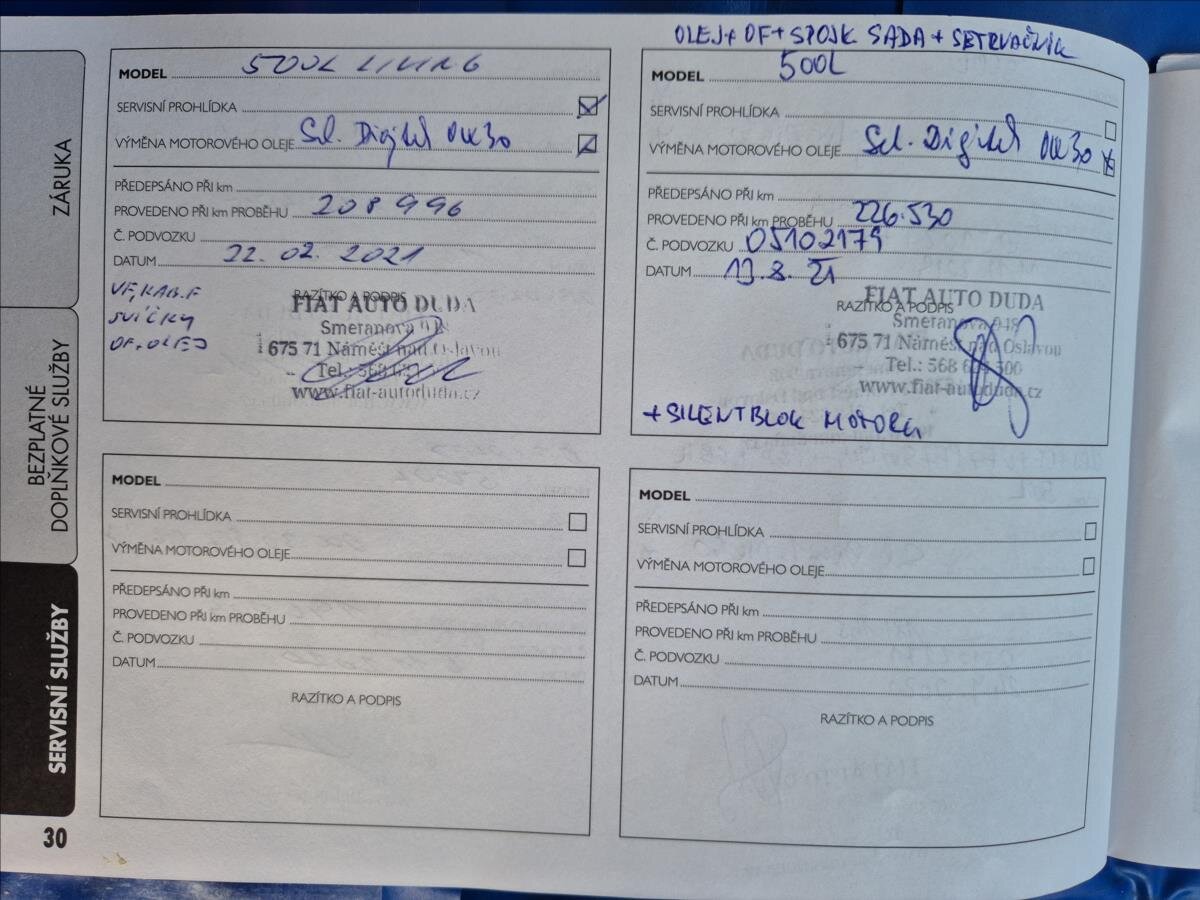 ZÁRUKA
BEZPLATNÉ
DOPLŇKOVÉ SLUŽBY
SERVISNÍ SLUŽBY
30
MODEL 500L LIVING
SERVISNÍ PROHLÍDKA
VÝMĚNA MOTOROVÉHO OLEJE Sel. Digitel 0W30
PŘEDEPSÁNO PŘI km
PROVEDENO PŘI km PROBĚHU 208 996
Č. PODVOZKU
DATUM 22. 02. 2021
VF, KAB. F
SVÍČKY
OF, OLEJ
RAZÍTKO A PODPIS
FIAT AUTO DUDA
Smetanova
675 71 Náměšť nad Oslavou
Tel.: 568
www.fiat-autoduda.cz
OLEJ + OF + SPOJK SADA + SETRVAČNÍK
MODEL 500L
SERVISNÍ PROHLÍDKA
VÝMĚNA MOTOROVÉHO OLEJE Sel. Digitel 0W30
PŘEDEPSÁNO PŘI km
PROVEDENO PŘI km PROBĚHU 226.530
Č. PODVOZKU 05102179
DATUM 13. 8. 21
RAZÍTKO A PODPIS
FIAT AUTO DUDA
Smetanova 948
675 71 Náměšť nad Oslavou
Tel.: 568
www.fiat-autoduda.cz
+ SILENTBLOK MOTORU
MODEL
SERVISNÍ PROHLÍDKA
VÝMĚNA MOTOROVÉHO OLEJE
PŘEDEPSÁNO PŘI km
PROVEDENO PŘI km PROBĚHU
Č. PODVOZKU
DATUM
RAZÍTKO A PODPIS
MODEL
SERVISNÍ PROHLÍDKA
VÝMĚNA MOTOROVÉHO OLEJE
PŘEDEPSÁNO PŘI km
PROVEDENO PŘI km PROBĚHU
Č. PODVOZKU
DATUM
RAZÍTKO A PODPIS